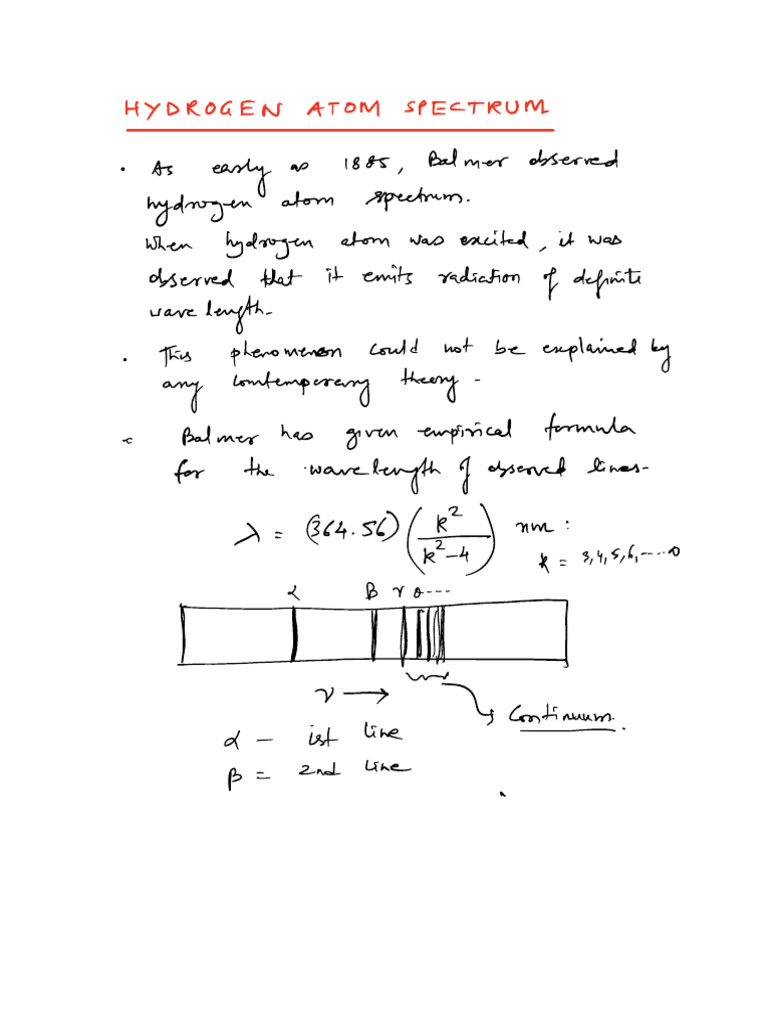 HYDROGEN ATOM SPECTRUM
. As early as 1885, Balmer observed
hydrogen atom spectrum.
When hydrogen atom was excited, it was
observed that it emits radiation of definite
wavelength.
. This phenomenon could not be explained by
any contemperary theory -
Balmer has given empirical formula
for the wavelength of observed lines-
λ = (364.56) (k²/(k²-4)) nm :
k = 3,4,5,6,----
α β γ ----
ν → Continuum.
α - ist line
β = 2nd line